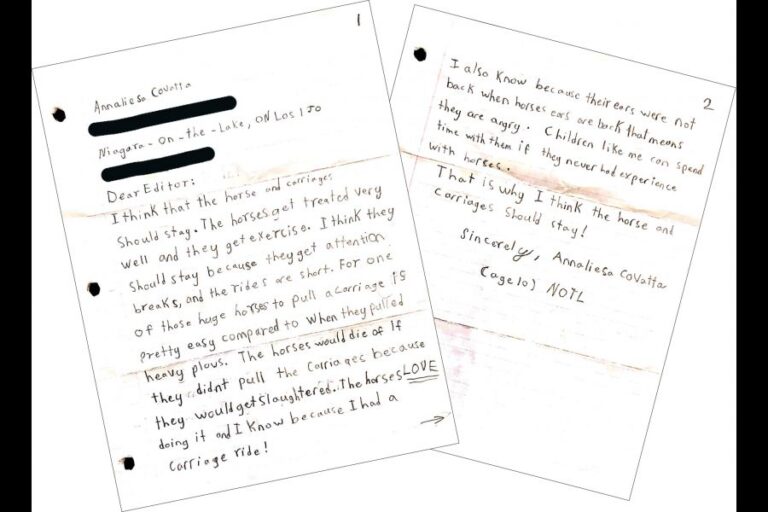 1
Annaliesa Covatta
Niagara-on-the-Lake, ON Los 1Jo
Dear Editor:
I think that the horse and carriages
should stay. The horses get treated very
well and they get exercise. I think they
should stay because they get attention
breaks, and the rides are short. For one
of those huge horses to pull a carriage is
pretty easy compared to when they pulled
heavy plows. The horses would die of if
they didnt pull the carriages because
they would get slaughtered. The horses LOVE
doing it and I know because I had a
carriage ride!
2
I also know because their ears were not
back when horses ears are back that means
they are angry. Children like me can spend
time with them if they never had experience
with horses.
That is why I think the horse and
carriages should stay!
Sincerely, Annaliesa Covatta
(age 10) NOTL